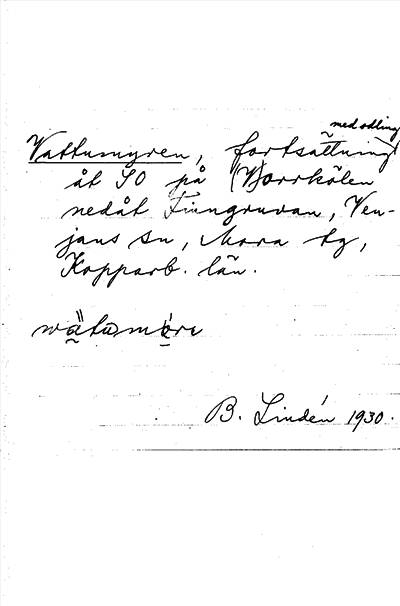 med odling
Vattumyren, fortsättning
åt SO på (N)orrkölen
nedåt Fiungruvan, Ven-
jans sn, Mora tg,
Kopparb. län.
B. Lindén 1930.